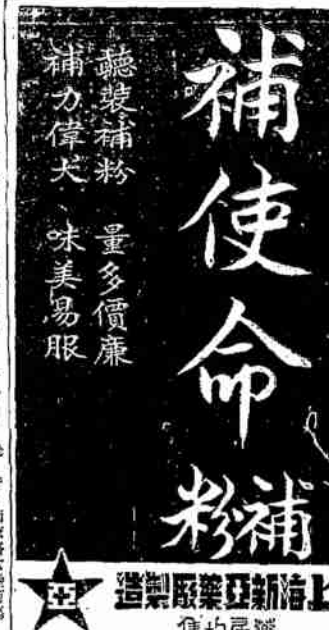 補使命
補粉
聽裝補粉 量多價廉
補力偉大、味美易服
上海新亞藥廠製造
亞